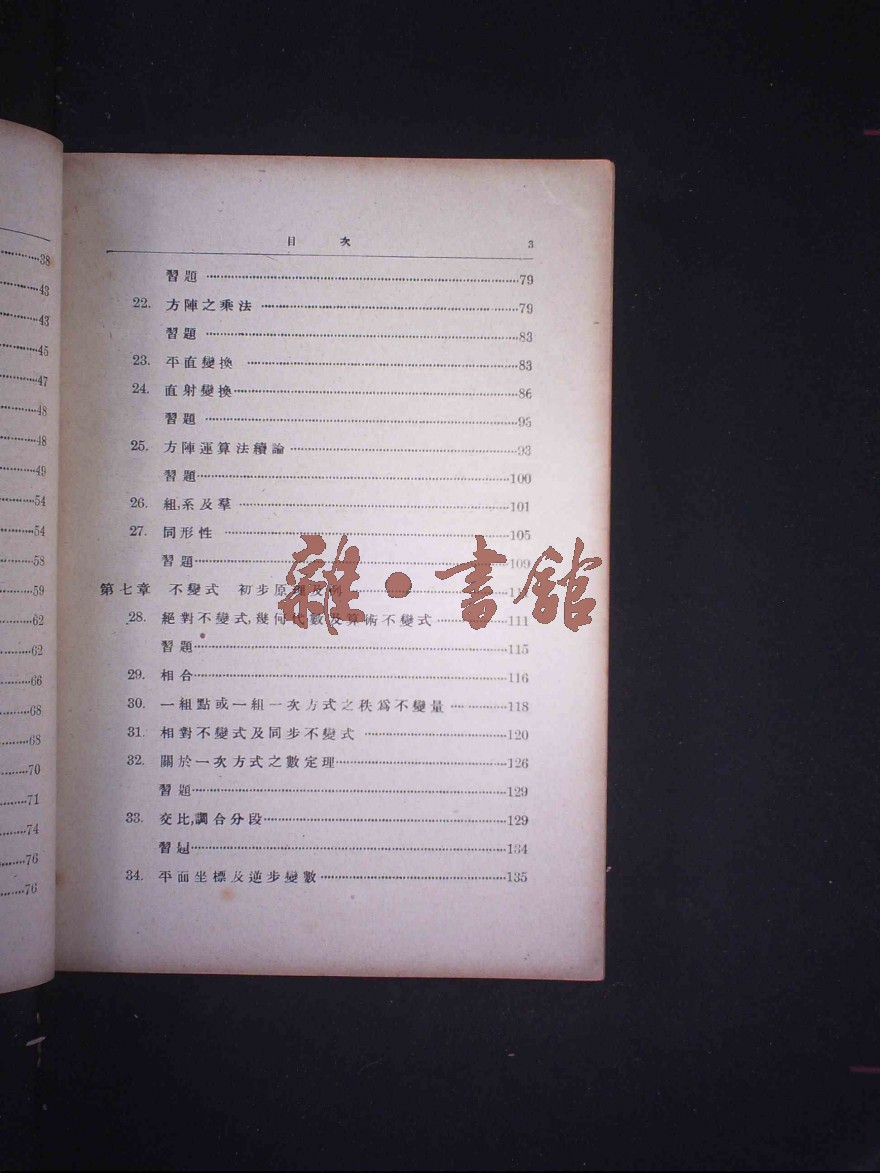 38
43
43
45
47
48
48
49
54
54
58
59
62
62
66
68
68
70
71
74
76
76
目 次 3
習題 79
22. 方陣之乘法 79
習題 83
23. 平直變換 83
24. 直射變換 86
習題 93
25. 方陣運算法續論 93
習題 100
26. 組,系及羣 101
27. 同形性 105
習題 109
第七章 不變式 初步原理及例
28. 絕對不變式,幾何代數及算術不變式 111
習題 115
29. 相合 116
30. 一組點或一組一次方式之秩爲不變量 118
31. 相對不變式及同步不變式 120
32. 關於一次方式之數定理 126
習題 129
33. 交比,調合分段 129
習題 134
34. 平面坐標及逆步變數 135
雜·書館